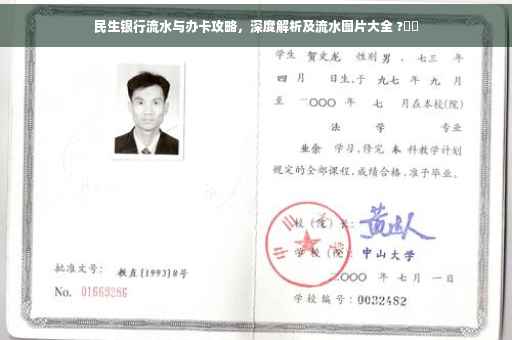 民生银行流水与办卡攻略，深度解析及流水图片大全 ?
学生 贺文龙 性别 男 ，七三 年
四 月 日生，于 九七 年 九 月
至 二〇〇〇 年 七 月在本校(院)
法 学 专业
业余 学习，修完 本 科教学计划
规定的全部课程，成绩合格，准予毕业。
校(院)长：
学校(院) 中山大学
批准文号： 教直[1993]8号
二〇〇〇 年 七 月 一 日
No. 01663286
学校编号：0032482